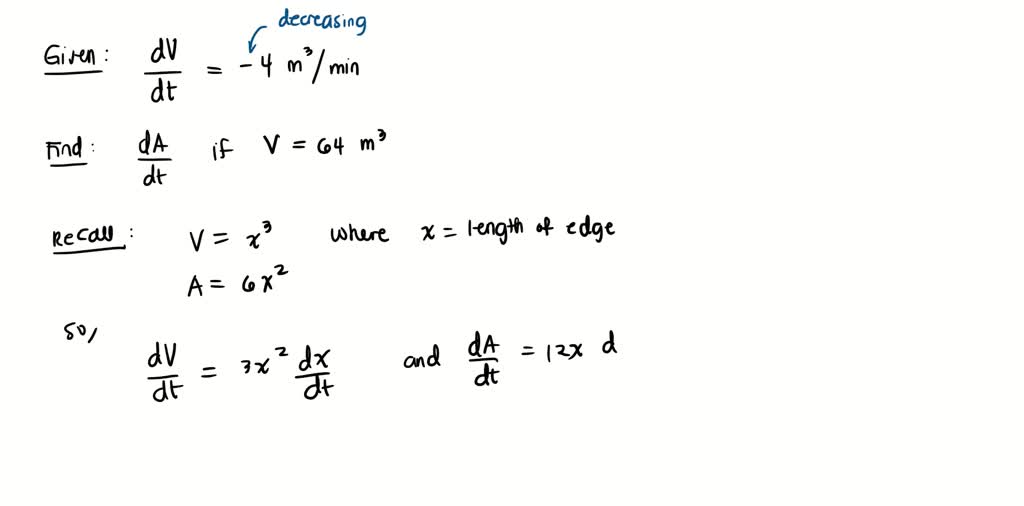 decreasing
Given: dV/dt = -4 m³/min
Find: dA/dt if V = 64 m³
Recall: V = x³ where x = length of edge
A = 6x²
so,
dV/dt = 3x² dx/dt and dA/dt = 12x d